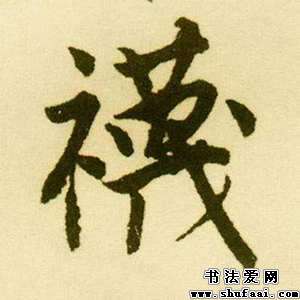 襪
书法爱网
www.shufaai.com